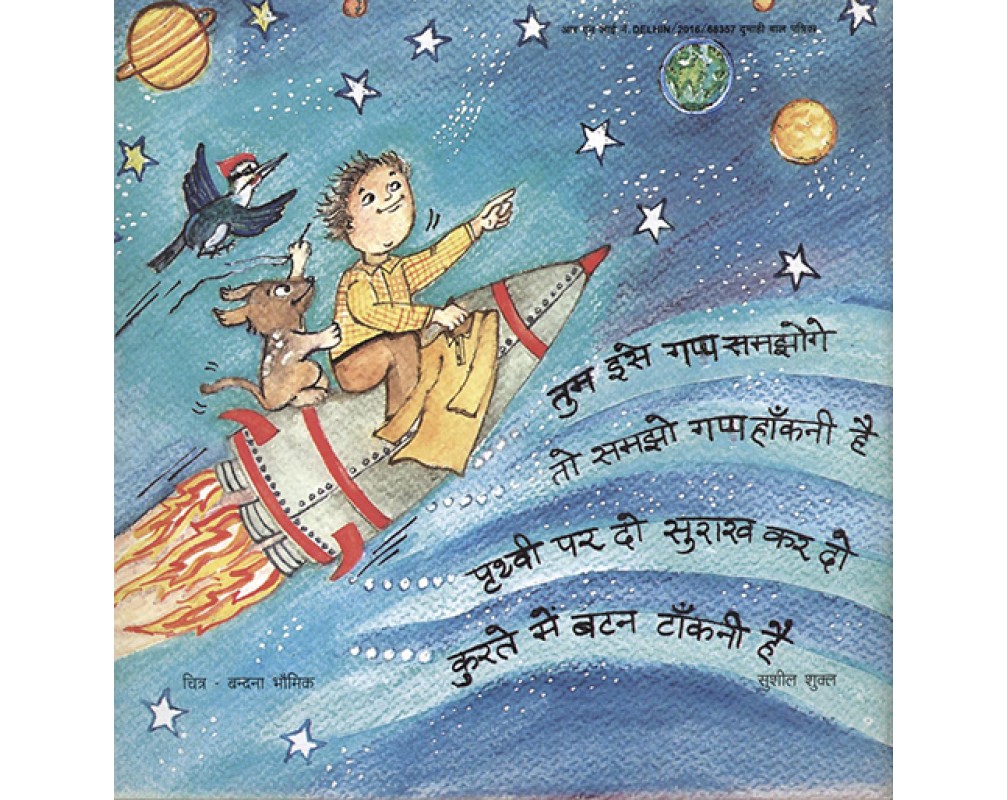 आर एन आई नं. DELHIN/2016/68357 दुमाही बाल पत्रिका
तुम इसे गप्प समझोगे
तो समझो गप्प हाँकनी है
पृथ्वी पर दो सुराख कर दो
कुरते में बटन टाँकनी है
चित्र - वन्दना भौमिक
सुशील शुक्ल